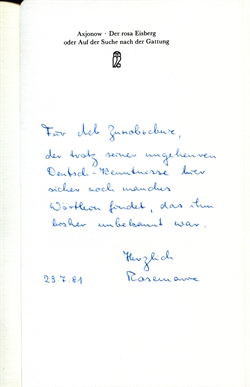 Axjonow · Der rosa Eisberg
oder Auf der Suche nach der Gattung
Für
der trotz seiner ungeheuren
Deutsch-Kenntnisse hier
sicher noch manches
Wörtlein findet, das ihm
bisher unbekannt war.
Herzlich
23.7.81 Rosemarie